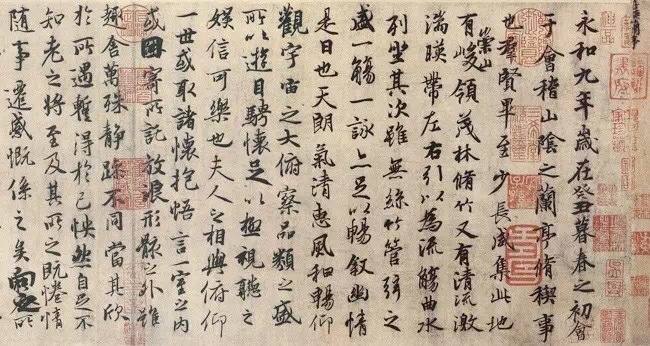 永和九年歲在癸丑暮春之初會
于會稽山陰之蘭亭脩稧事
也羣賢畢至少長咸集此地
有崇山峻領茂林脩竹又有清流激
湍暎帶左右引以為流觴曲水
列坐其次雖無絲竹管弦之
盛一觴一詠亦足以暢敘幽情
是日也天朗氣清惠風和暢仰
觀宇宙之大俯察品類之盛
所以遊目騁懷足以極視聽之
娛信可樂也夫人之相與俯仰
一世或取諸懷抱悟言一室之內
或因寄所託放浪形骸之外雖
趣舍萬殊靜躁不同當其欣
於所遇暫得於己怏然自足不
知老之將至及其所之既惓情
隨事遷感慨係之矣向之所